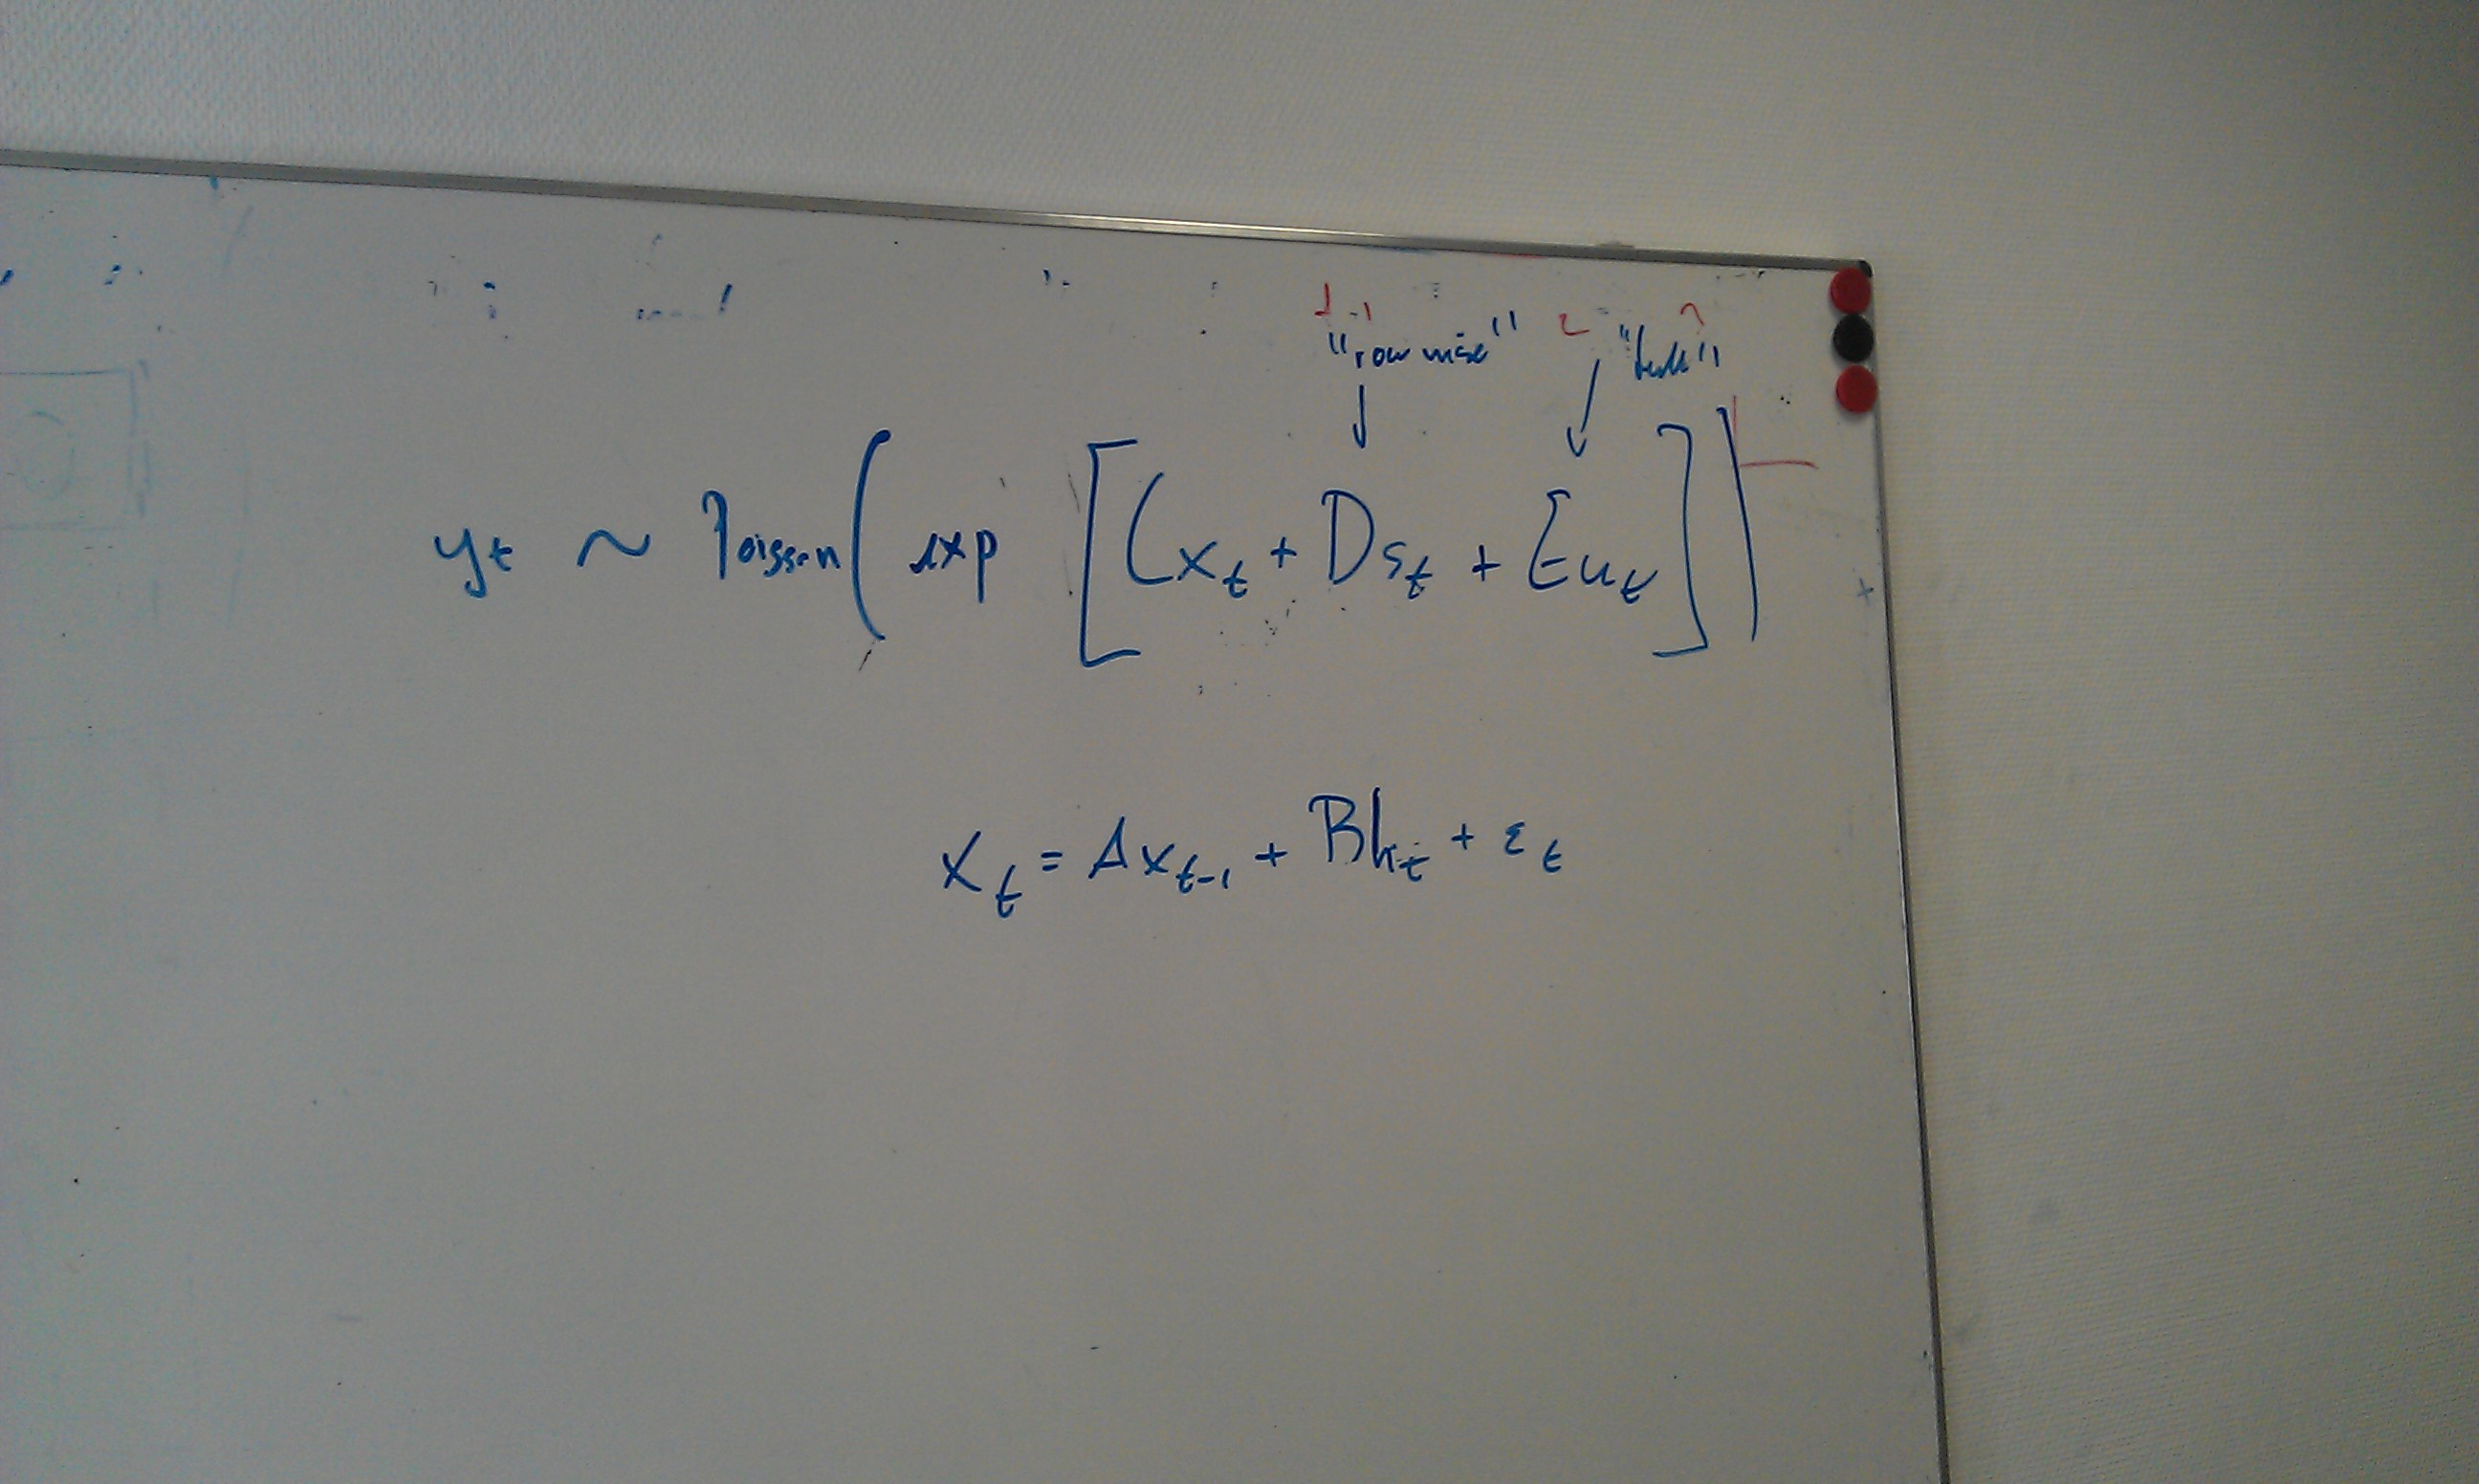 "row wise" "full"
y_t ~ Poisson( exp [ C x_t + D s_t + E u_t ] )
x_t = A x_{t-1} + B h_t + ε_t